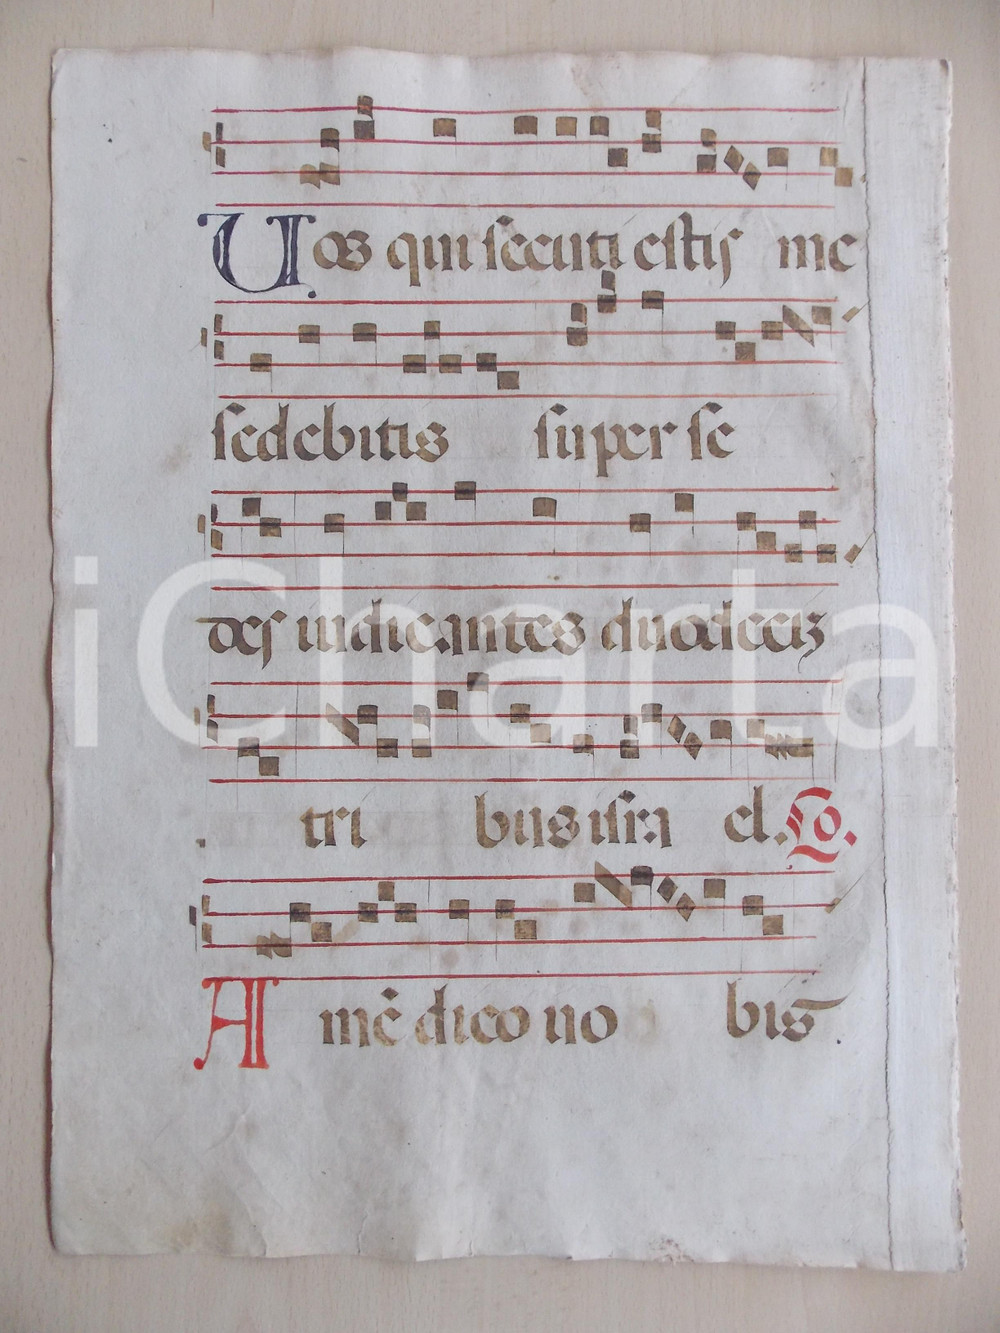 Uos qui secuti estis me
sedebitis super se
des iudicantes duodeciʒ
tribus isra el. Co.
Amē dico uobis.
iCharta